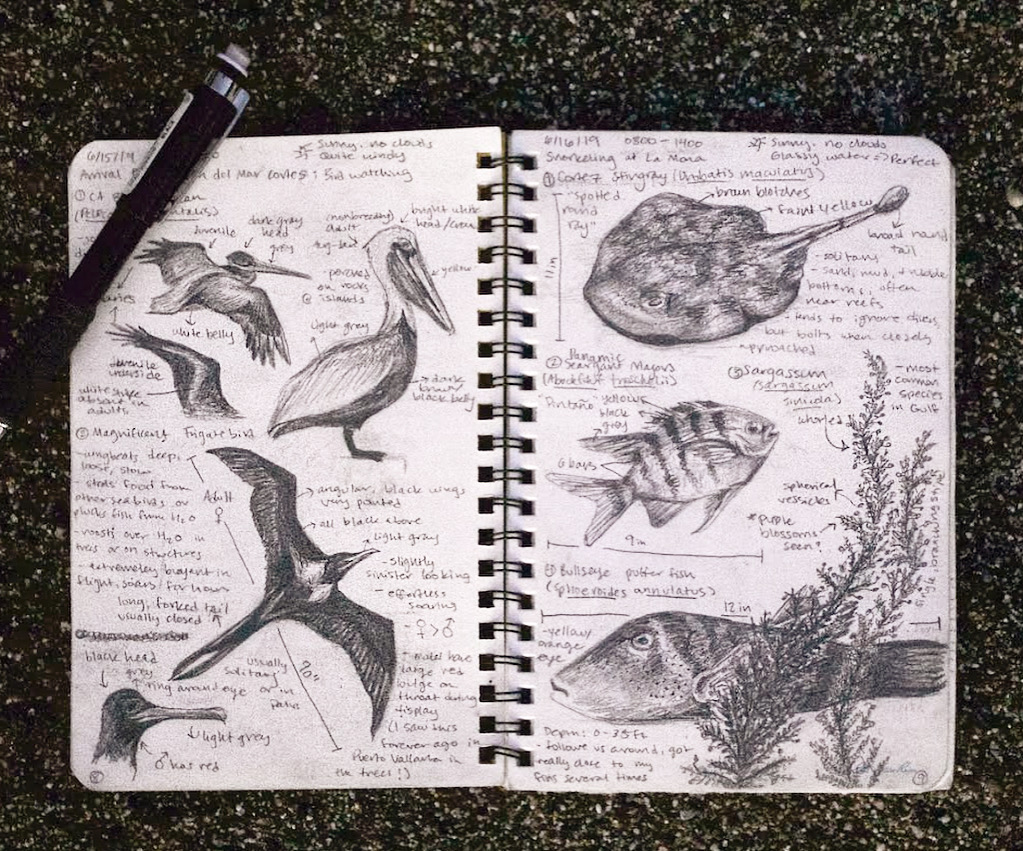 6/15/19
Sunny, no clouds
Quite windy
Arrival
del Mar Cortes: bird watching
① CA
dark gray
head
juvenile
gray
(nonbreeding)
adult
bright white
head/crown
yellow
- perched
on rocks
@ islands
light gray
white belly
juvenile
underside
white stripe
absent in
adults
dark
brown/
black belly
② Magnificent Frigatebird
- wingbeats deep,
loose, slow
- steals food from
other sea birds or
plucks fish from H2O
- roosts over H2O in
trees or on structures
- extremely buoyant in
flight, soars for hours
long, forked tail
usually closed
Adult
♀
angular, black wings
very pointed
all black above
light gray
- slightly
sinister looking
- effortless
soaring
- ♀ > ♂
- males have
large red
bulge on
throat during
display
(I saw this
forever ago in
Puerto Vallarta in
the trees!)
black head
gray
ring around eye
usually
solitary
or in
pairs
90"
light grey
♂ has red
8
6/16/19 0800 - 1400
Sunny, no clouds
Glassy water => Perfect
Snorkeling at La Mora
① Cortez Stingray (Urobatis maculatus)
"spotted
round
ray"
brown blotches
faint yellow
11 in
broad round
tail
- solitary
- sand, mud, + rubble
bottoms, often
near reefs
- tends to ignore divers,
but bolts when closely
approached
② Panamic
Sergeant Majors
(Abudefduf troschelii)
"Pintaño"
yellow
black
gray
6 bars
9 in
③ Sargassum
(sargassum
sinicola)
- most
common
species
in Gulf
whorled
spherical
vessicles
* Purple
blossoms
seen?
single, branching
④ Bullseye puffer fish
(Sphoeroides annulatus)
12 in
- yellow/
orange
eye
Depth: 0-35 ft
- follows us around, got
really close to my
fins several times
9